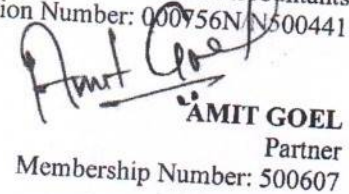 ion Number: 000756N/N500441
Amit Goel
AMIT GOEL
Partner
Membership Number: 500607